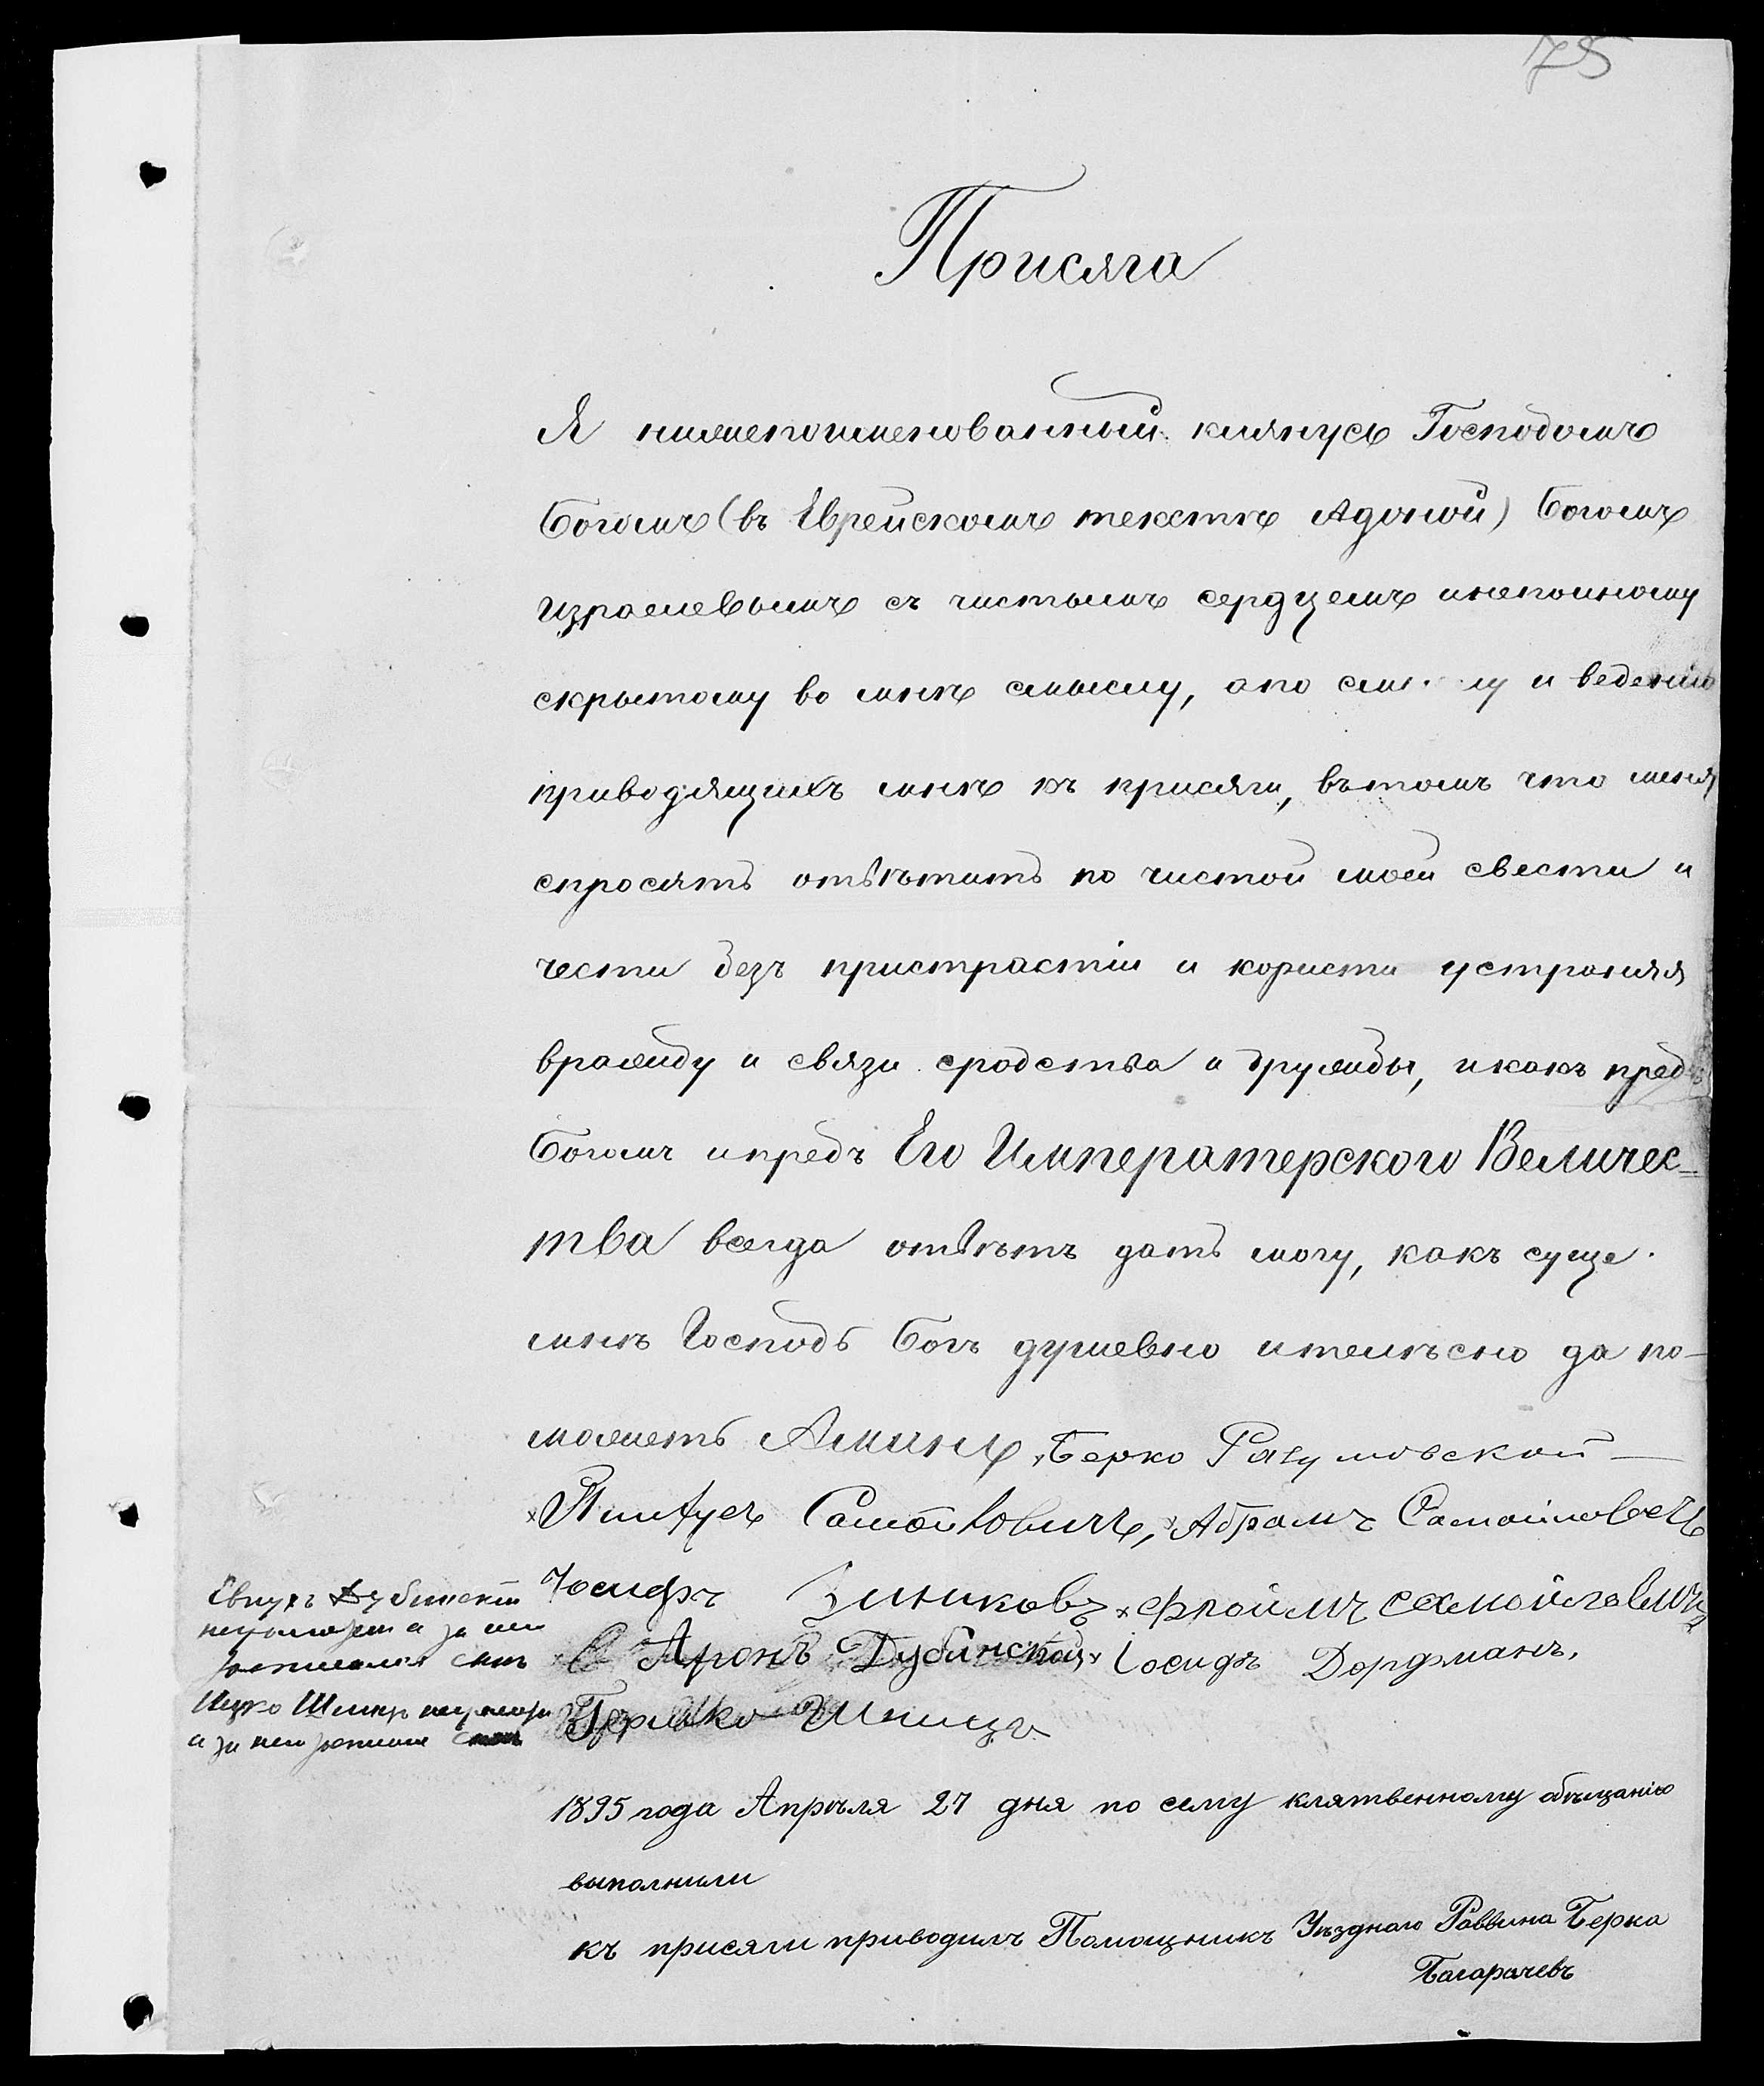 75
Присяга
Я нижепоименованный клянусь Господомъ
Богомъ (въ Еврейскомъ текстѣ Адоной) Богомъ
израилевымъ съ чистымъ сердцемъ инепоиному
скрытому во мнѣ смыслу, апо смыслу и веденію
приводящихъ мнѣ къ присяги, въ томъ что меня
спросятъ отвѣтить по чистой моей свести и
чести безъ пристрастіи и користи устроняя
вражиду и связи сродства и дружиды, икакъ предъ
Богомъ ипредъ Его Императерского Величес=
тва всегда отвѣтъ дать могу, какъ суще
мнѣ Господь Богъ душевно ителѣсно да по-
можетъ Аминь, Берко Разумовской —
Пинхусъ Самойловичъ, Абрамъ Самойловечъ
Іосифъ Зиниковъ Фроимъ Самойлавичъ
Аронъ Дубинской Іосифъ Дордманъ.
Гершко Шпицъ
Дубинскій
Ицко
1895 года Апрѣля 27 дня по сему клятвенному обѣщанію
выполнили
къ присяги приводилъ Помощникъ Уѣзднаго Раввина Берка
Багарачевъ